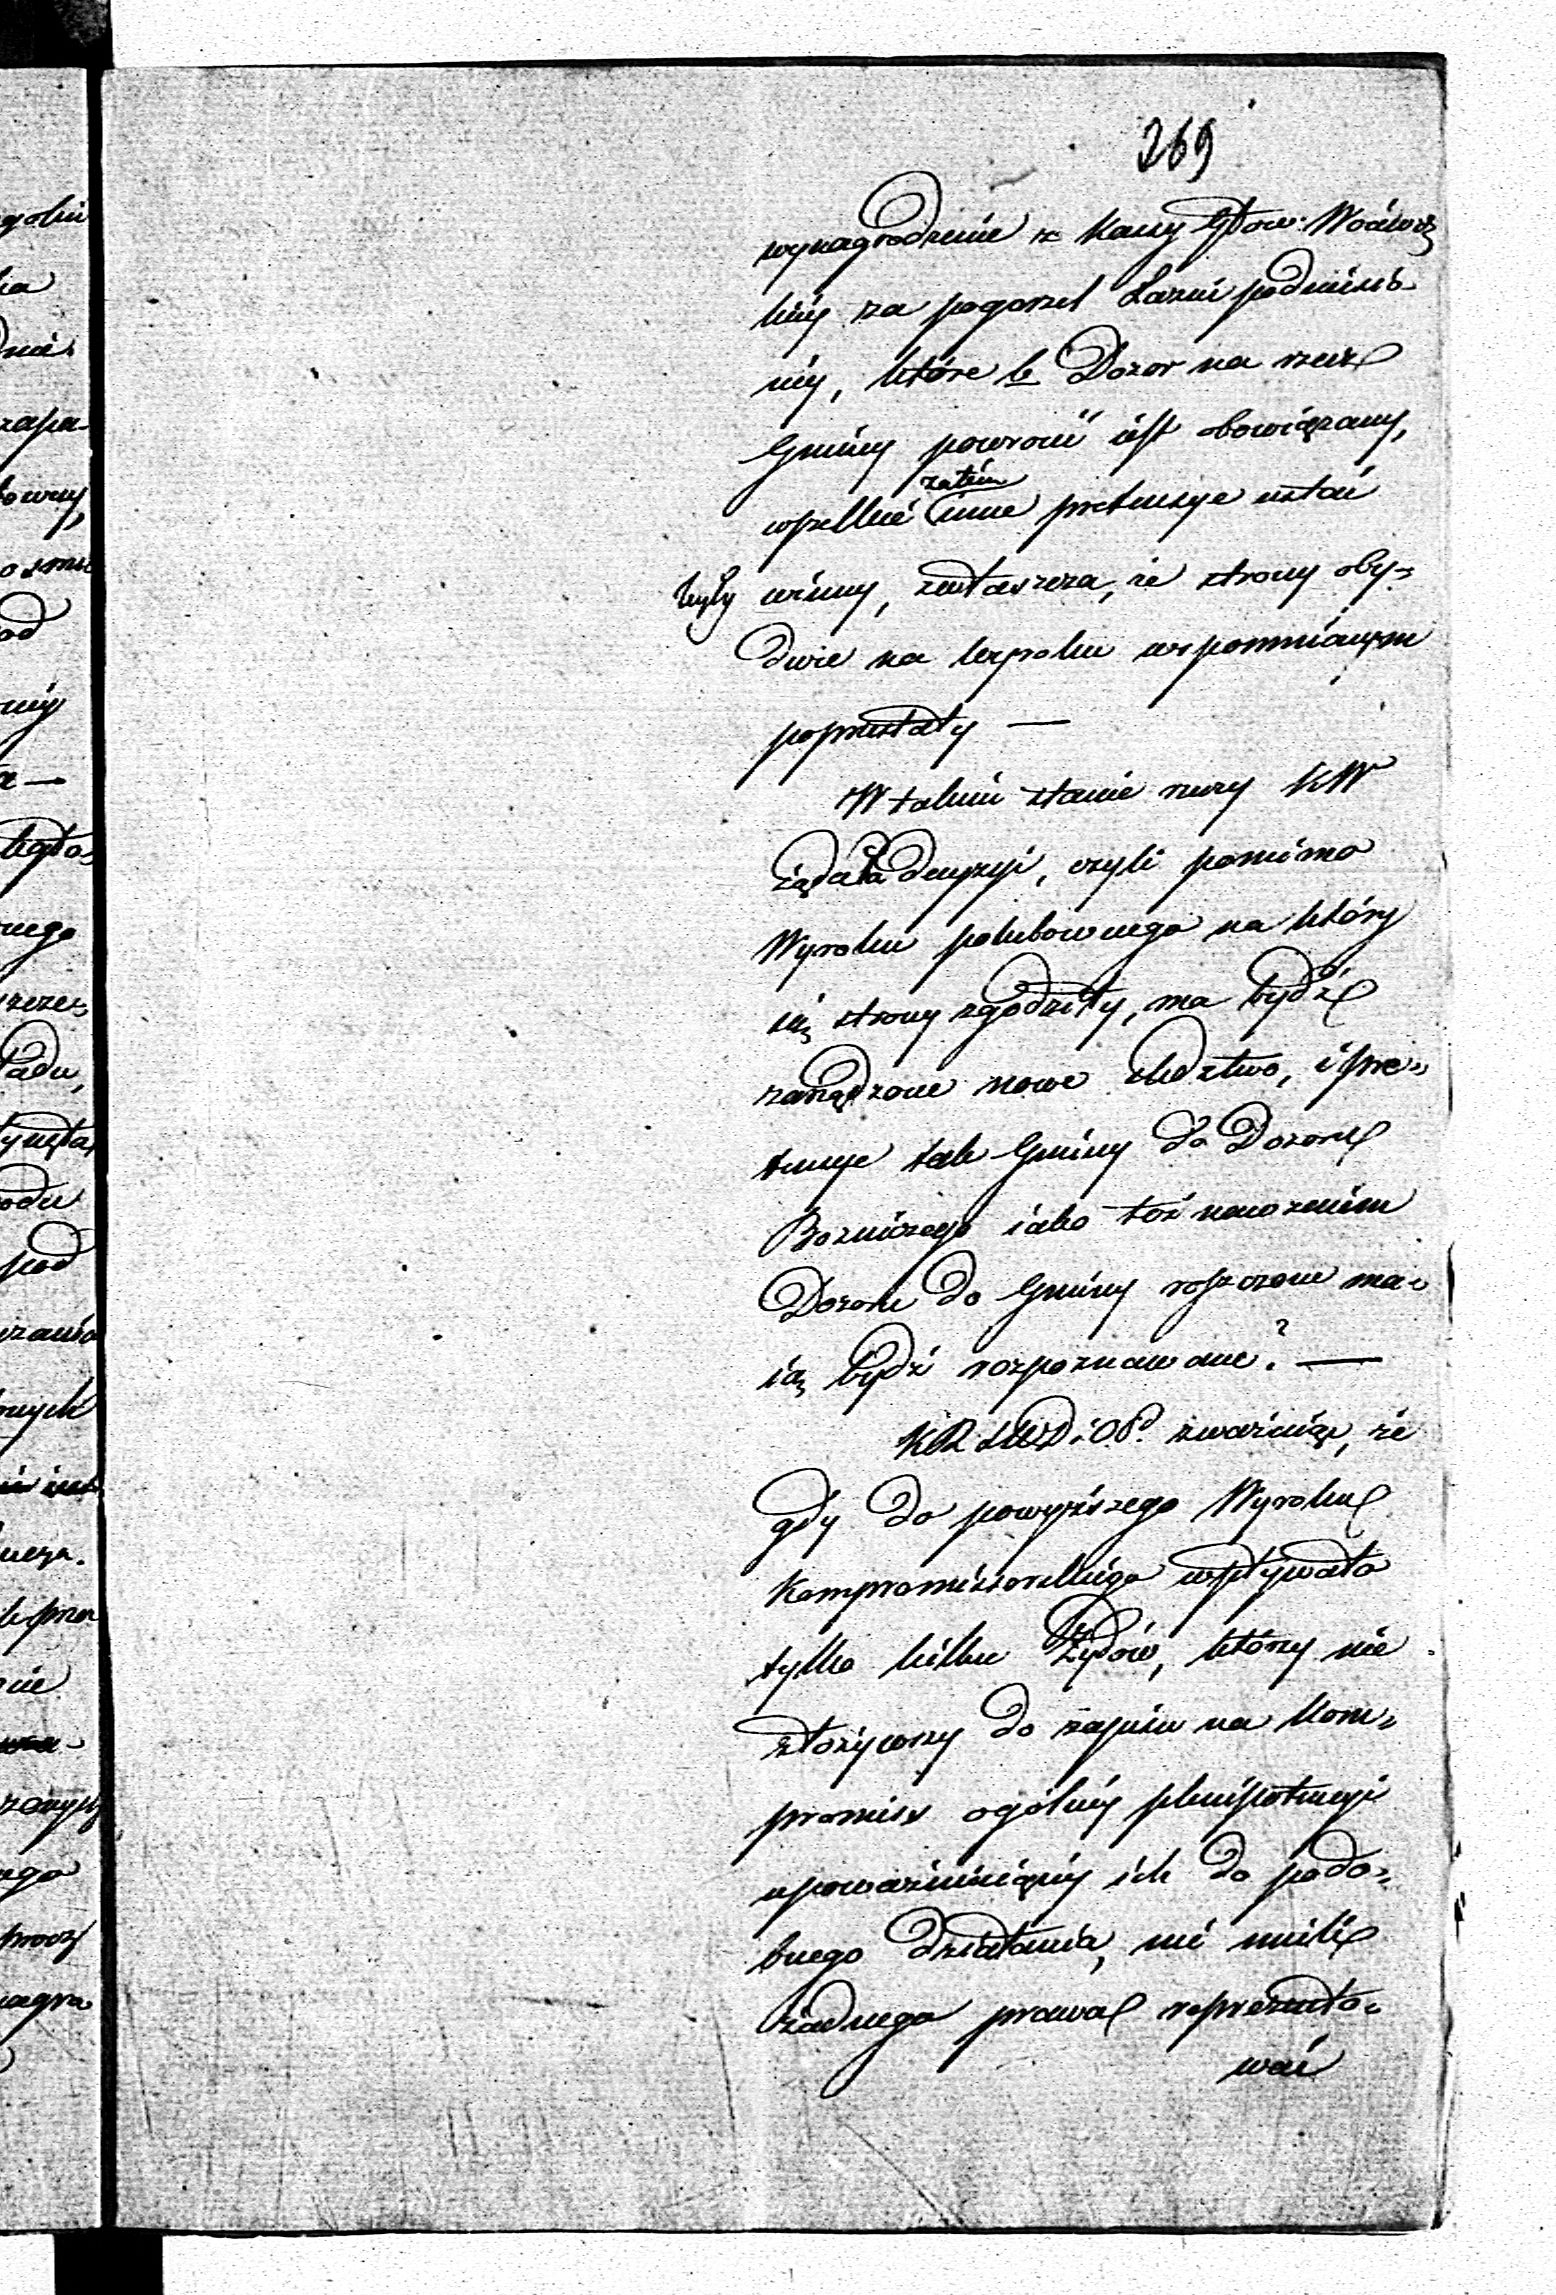 269
wynagrodzenie z Kassy Głow: Wociewodz
kiey za pogorzel Łazni podniesio-
ney, które b Dozor na rzecz
Gminy powrocić iest obowiązany,
wszelkie zatém inne pretensye ustać
były winny, zwłaszcza, że strony oby=
dwie na wyroku wspomnianym
poprzestały —
W takim stanie rzeczy KW
żądała decyzyi, czyli pomimo
Wyroku polubownego na który
się strony zgodziły, ma bydź
zarządzone nowe sledztwo, i pre=
tensye tak Gminy do Dozoru
Bozniczego iako też nawzaiem
Dozoru do Gminy roszczone ma=
ią bydź rozpoznawane? —
KRSWDiOP. zważaiąc, że
gdy do powyższego Wyroku
Kompromissorskiego wpływało
tylko kilku Żydów, którzy nie
złożywszy do zapisu na Kom=
promiss ogólney plenipotencyi
upoważniaiącey ich do podo=
bnego działania, nie mieli
żadnego prawa reprezento=
wać
golni
ia
zapa-
od
ney
nego
ładu,
odu
pod
nych
nie
ego